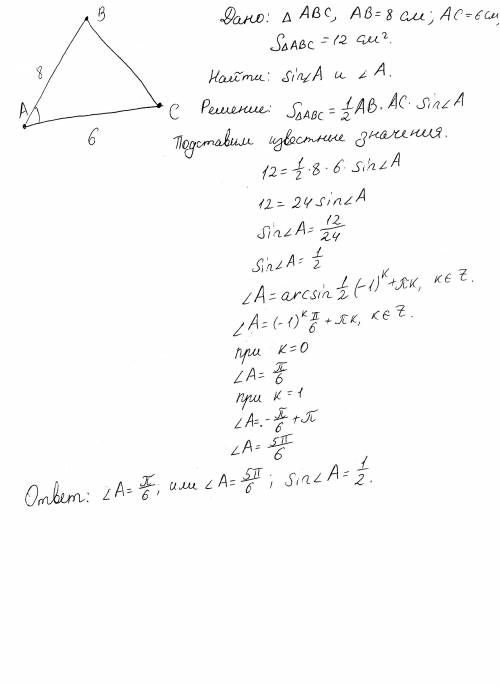 B
8
A
C
6
Дано: △ ABC, AB=8 см; AC=6см,
S△ABC=12 см².
Найти: sin∠A и ∠A.
Решение: S△ABC=1/2 AB·AC·sin∠A
Подставим известные значения.
12=1/2·8·6·sin∠A
12=24sin∠A
sin∠A=12/24
sin∠A=1/2
∠A=arcsin 1/2 (-1)^k+πk, k∈Z.
∠A=(-1)^k π/6+πk, k∈Z.
при k=0
∠A=π/6
при k=1
∠A=-π/6+π
∠A=5π/6
Ответ: ∠A=π/6, или ∠A=5π/6; sin∠A=1/2.